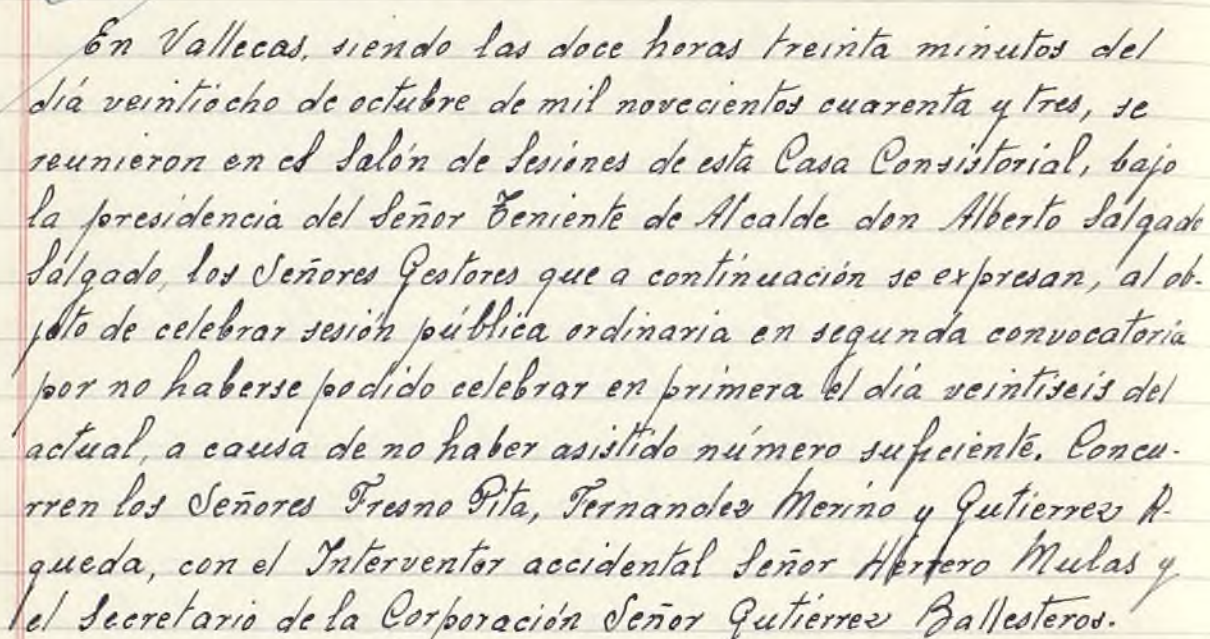 En Vallecas, siendo las doce horas treinta minutos del
día veintiocho de octubre de mil novecientos cuarenta y tres, se
reunieron en el Salón de Sesiones de esta Casa Consistorial, bajo
la presidencia del Señor Teniente de Alcalde don Alberto Salgado
Salgado, los Señores Gestores que a continuación se expresan, al ob-
jeto de celebrar sesión pública ordinaria en segunda convocatoria
por no haberse podido celebrar en primera el día veintiseis del
actual, a causa de no haber asistido número suficiente. Concu-
rren los Señores Fresno Pita, Fernandez Merino y Gutierrez A-
gueda, con el Interventor accidental Señor Herrero Mulas y
el Secretario de la Corporación Señor Gutiérrez Ballesteros.